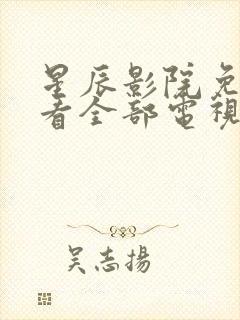 星辰影院免
看全部電視
吴志揚